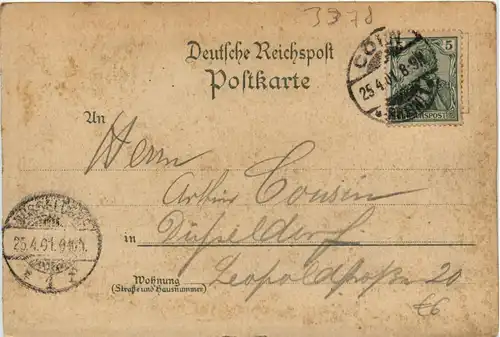 3378
Deutsche Reichspost
Postkarte
CÖLN
25.4.01. 8-9N.
5
REICHSPOST
An
Herrn
Arthur Cousin
in Düsseldorf
Leopoldstraße 20
Wohnung
(Straße und Hausnummer)
25.4.01.
€6